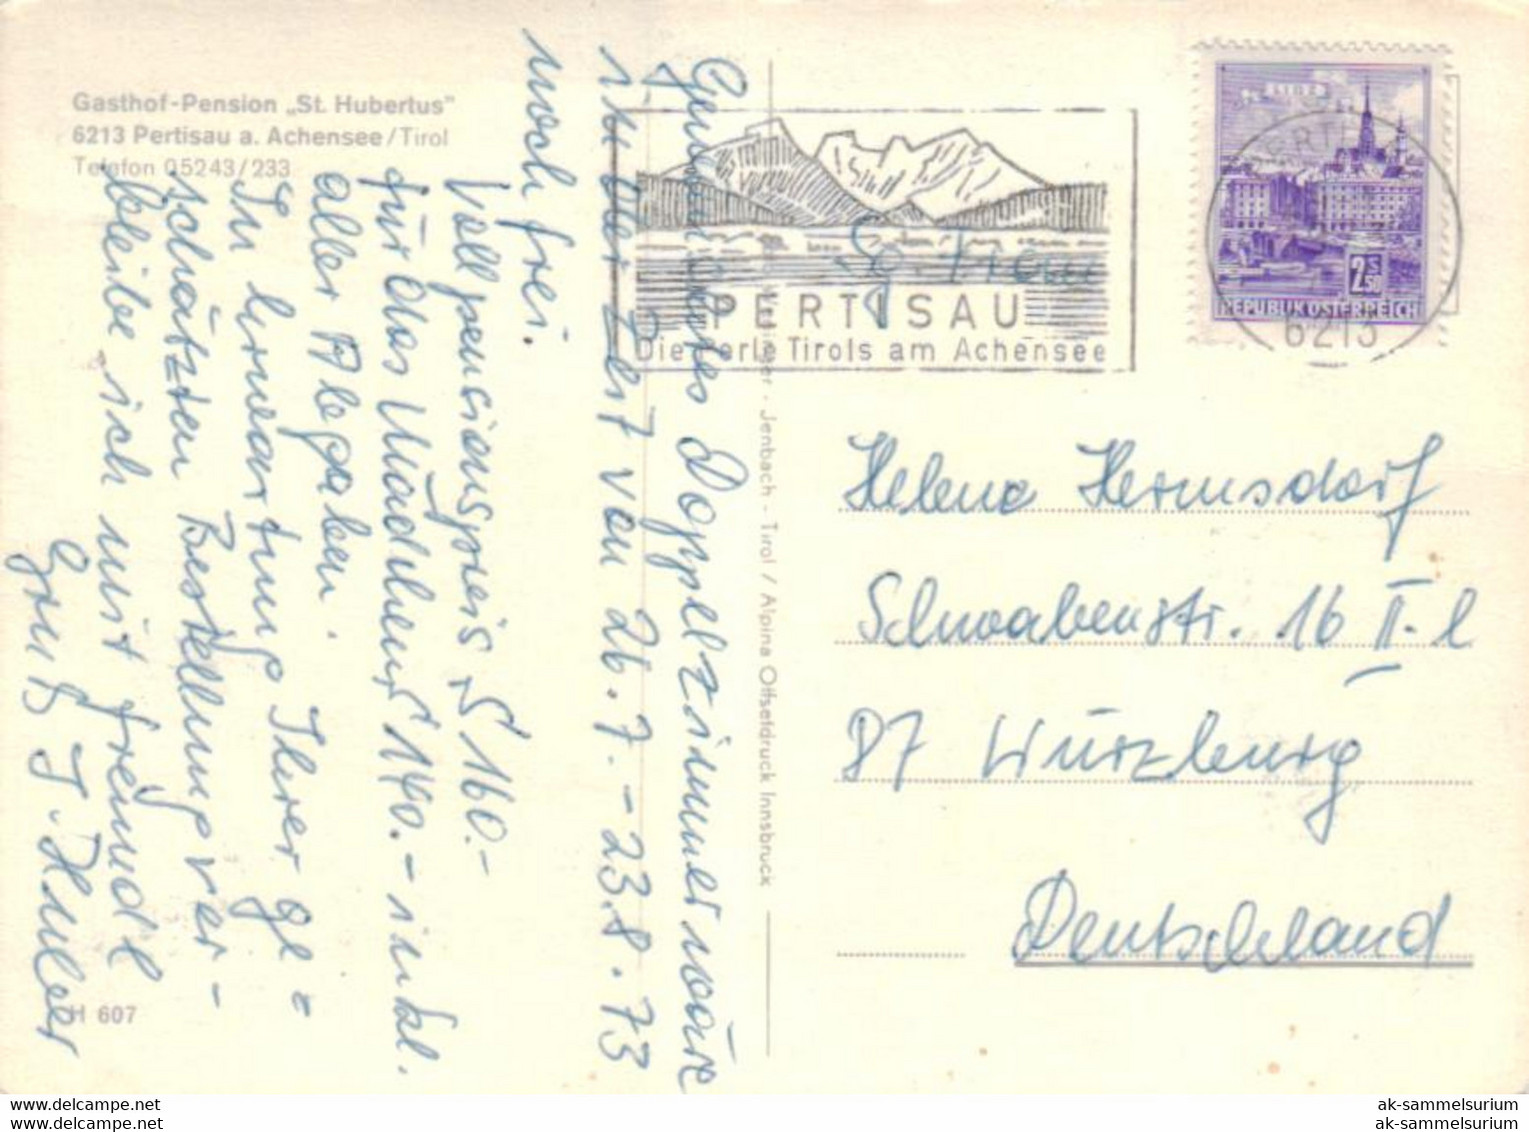 Gasthof-Pension „St. Hubertus"
6213 Pertisau a. Achensee/Tirol
Telefon 05243/233
Gewünschtes Doppelzimmer wäre
in der Zeit von 26.7.-23.8.73
noch frei.
Vollpensionspreis S 160.-
für das Mädchen S 140.- inkl.
aller Abgaben.
In Erwartung Ihrer ge=
schätzten Bestellung ver-
bleibe ich mit freundl
Gruß
H 607
Jenbach - Tirol / Alpina Offsetdruck Innsbruck
PERTISAU
Die Perle Tirols am Achensee
LINZ
2.50
REPUBLIK ÖSTERREICH
6213
Sg. Frau
Helene Hermsdorf
Schwabenstr. 16 II. l
87 Würzburg
Deutschland
www.delcampe.net
ak-sammelsurium
ak-sammelsurium
ak-sammelsurium